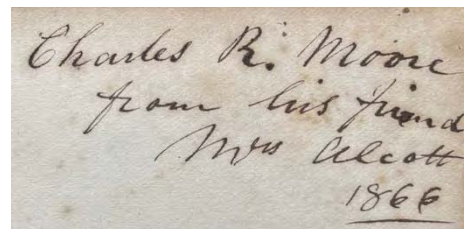 Charles R. Moore
from his friend
Mrs Alcott
1866